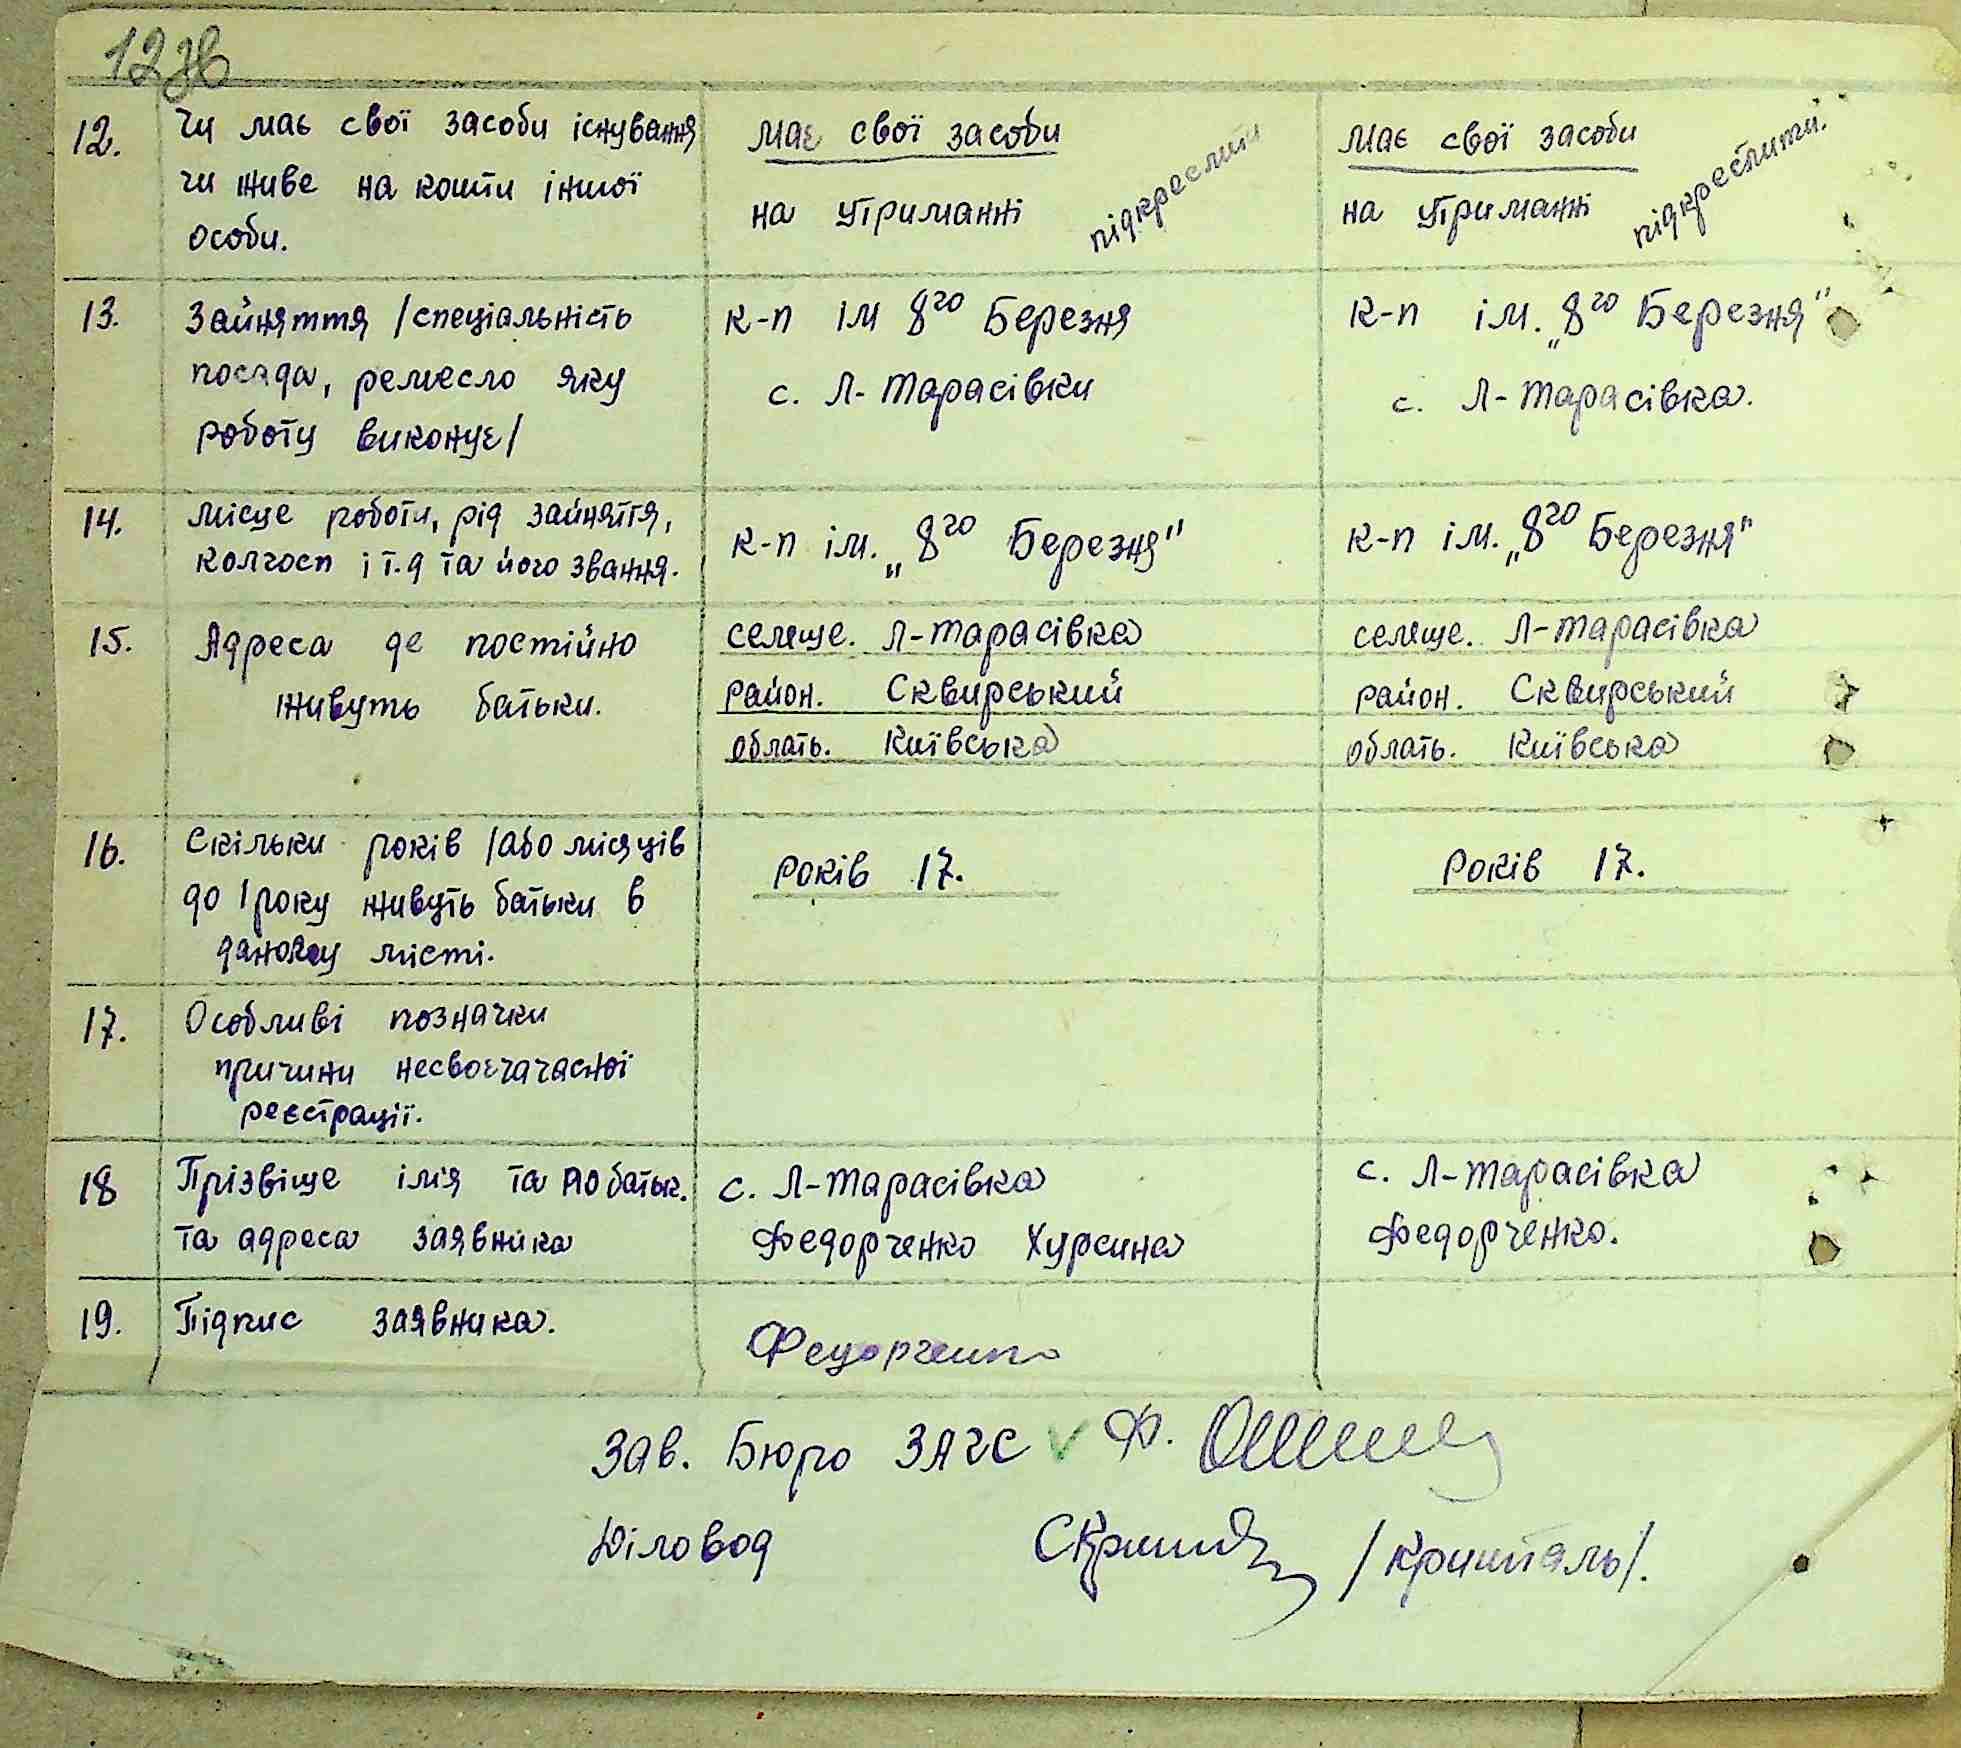 12зв
12. Чи має свої засоби існування
чи живе на кошти іншої
особи.
має свої засоби
на утриманні
підкреслити
має свої засоби
на утриманні
підкреслити.
13. Зайняття /спеціальність
посада, ремесло яку
роботу виконує/
к-п ім 8го Березня
с. Л-Тарасівки
к-п ім. „8го Березня"
с. Л-Тарасівка.
14. Місце роботи, рід зайняття,
колгосп і т.д та його звання.
к-п ім. „8го Березня"
к-п ім. „8го Березня"
15. Адреса де постійно
живуть батьки.
селеще. Л-Тарасівка
район. Сквирський
облать. Київська
селеще. Л-Тарасівка
район. Сквирський
облать. Київська
16. Скільки років /або місяців
до 1 року живуть батьки в
даному місті.
років 17.
років 17.
17. Особливі позначки
причини несвоєчачасної
реєстрації.
18 Прізвіще ім'я та по батьк.
та адреса заявника
с. Л-Тарасівка
Федорченко Хурсина
с. Л-Тарасівка
Федорченко.
19. Підпис заявника.
Федорченко
Зав. Бюро ЗАГС Ф.
Діловод /Кришталь/.